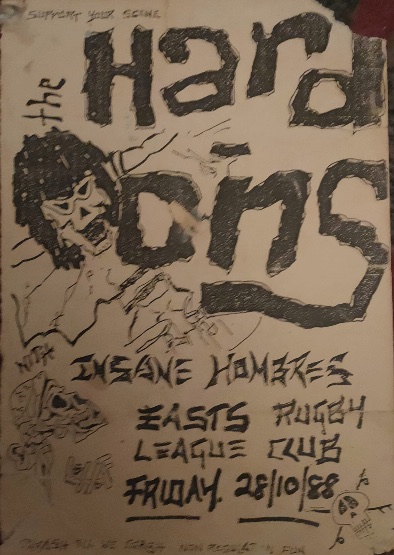 SUPPORT YOUR SCENE
the
Hard
Ons
WITH
INSANE HOMBRES
EASTS RUGBY
LEAGUE CLUB
FRIDAY. 28/10/88